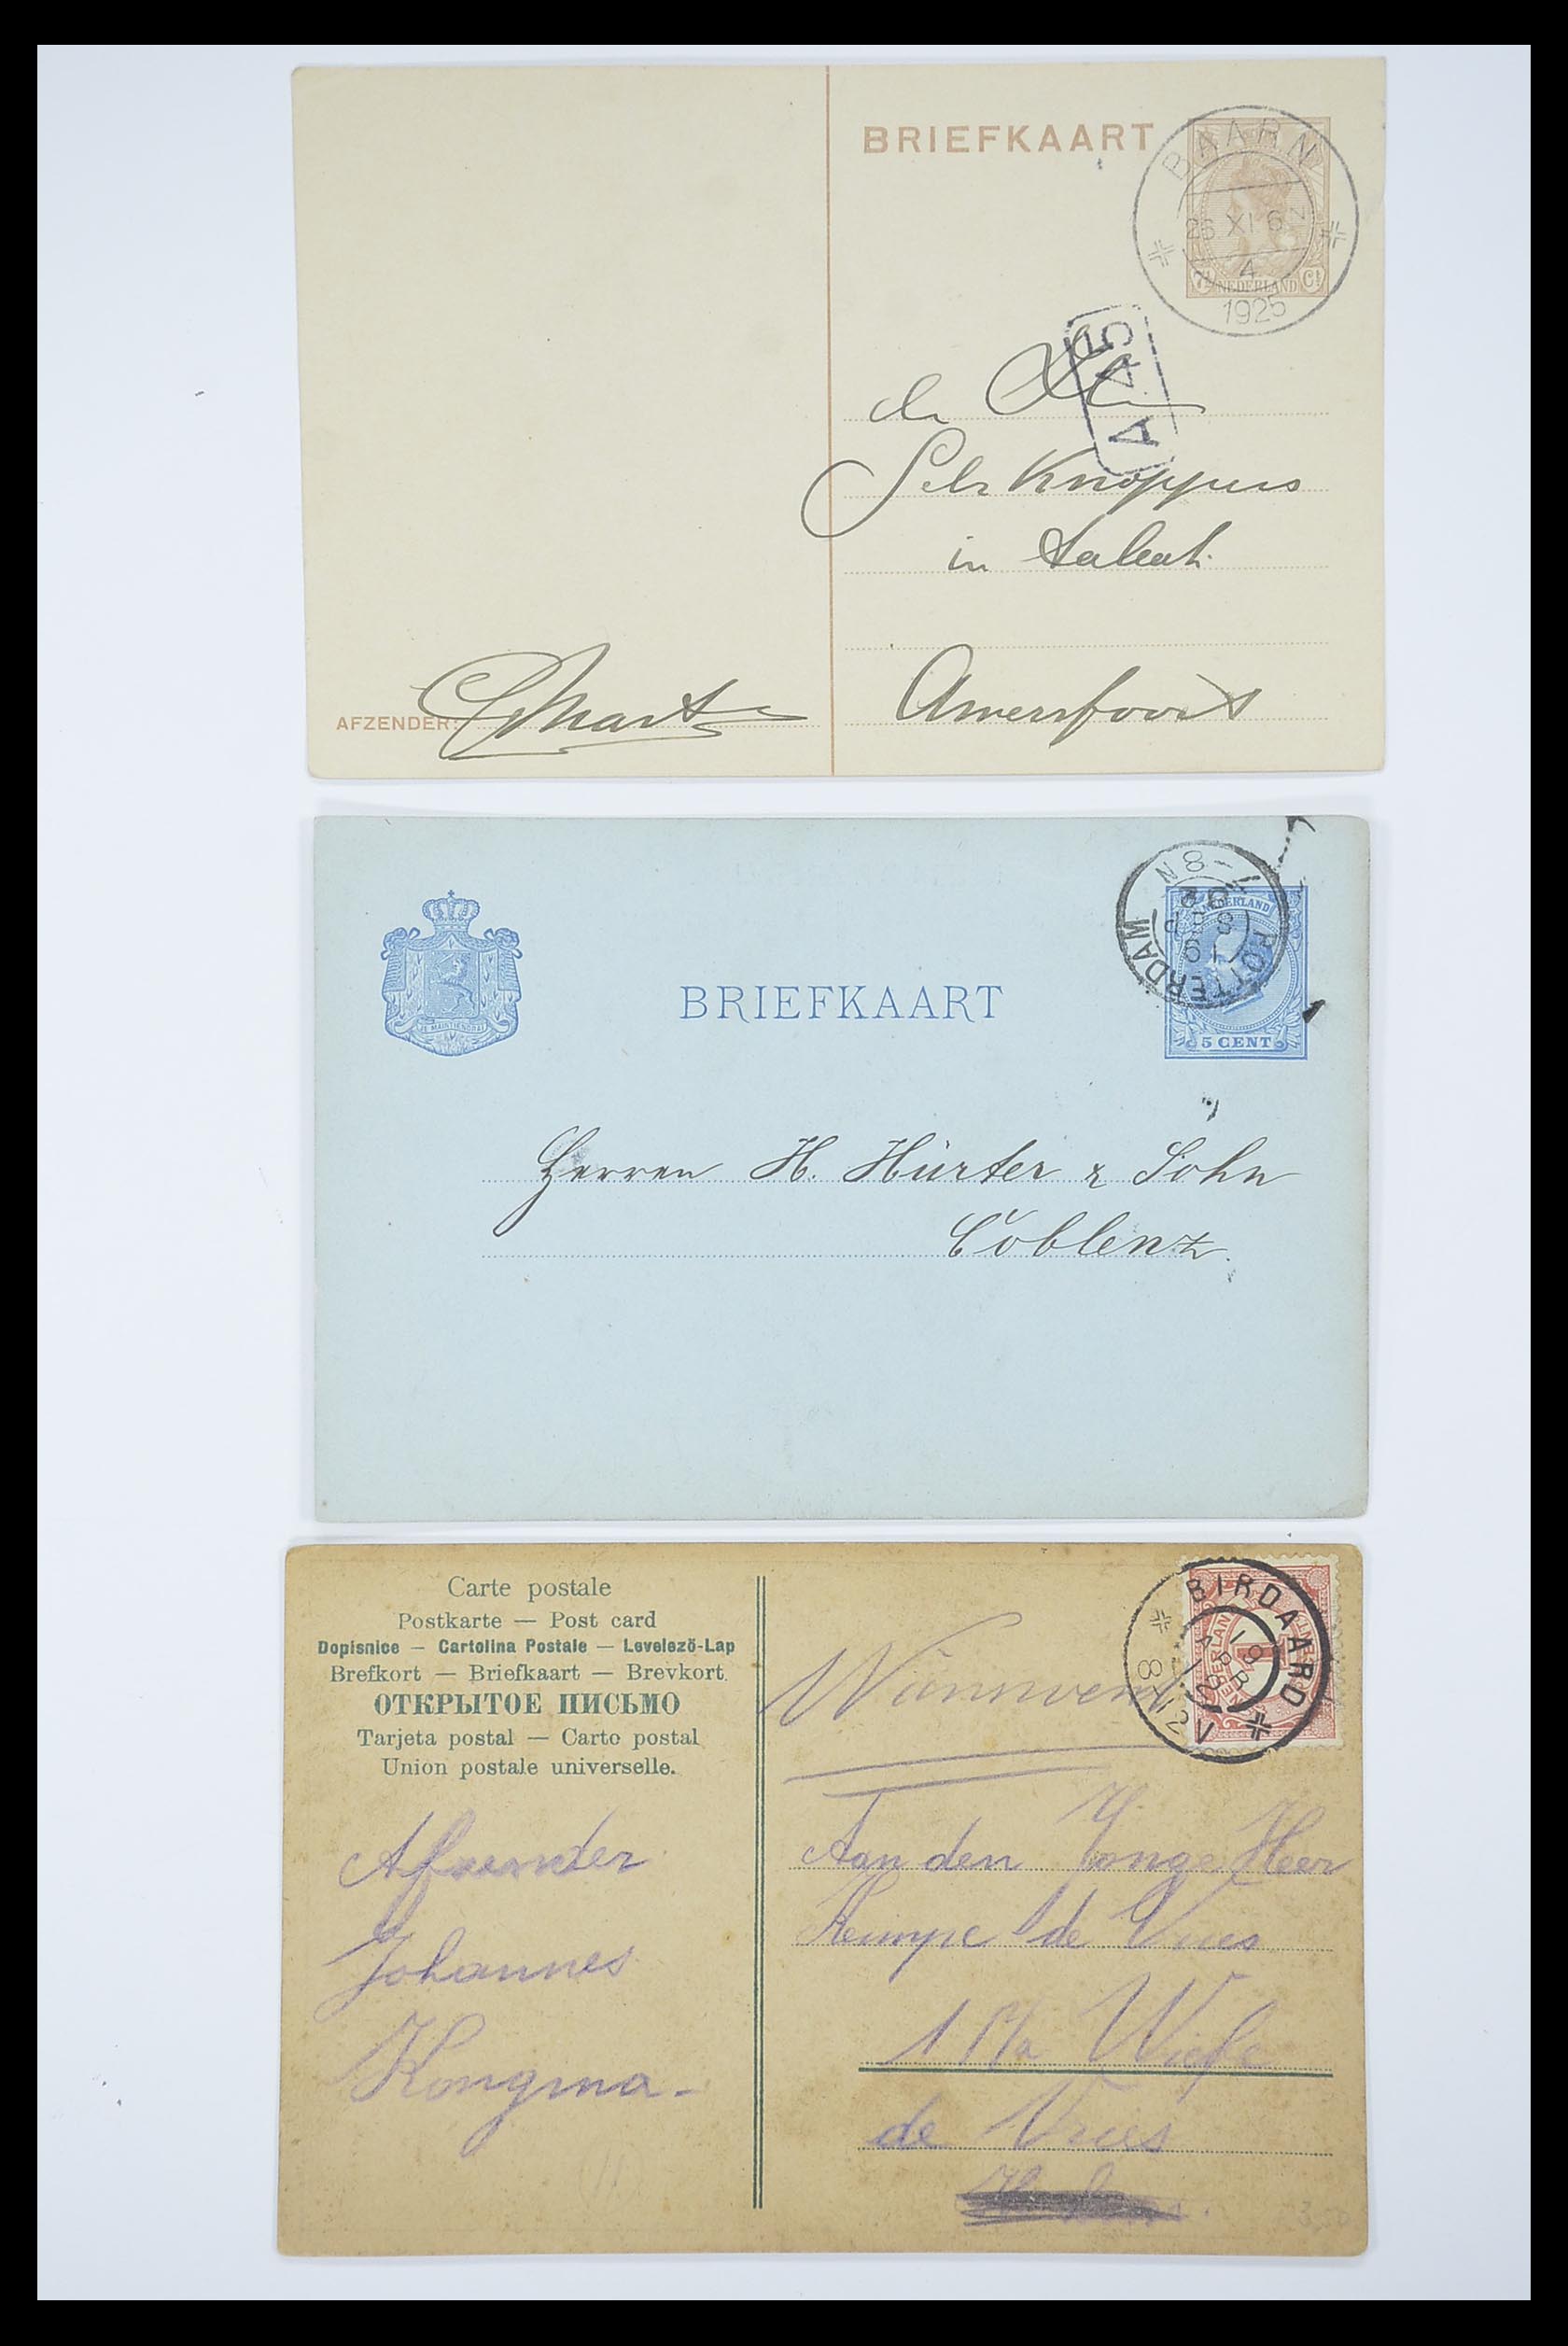 BRIEFKAART
BAARN
26 XI 6 N
4
1925
7½ NEDERLAND Ct
A 45
de
Knoppers
in
Amersfoort
AFZENDER:
BRIEFKAART
JE MAINTIENDRAI
ROTTERDAM
8-N
19
SEP
NEDERLAND
5 CENT
Herren H. Hürter & Sohn
Coblenz.
Carte postale
Postkarte — Post card
Dopisnice — Cartolina Postale — Levelező-Lap
Brefkort — Briefkaart — Brevkort
ОТКРЫТОЕ ПИСЬМО
Tarjeta postal — Carto postal
Union postale universelle.
BIRDAARD
19
APR
12
8-12V
Afzender
Johannes
Kongma-
Aan den Jonge Heer
Kempe de Vries
de Vries
3,50